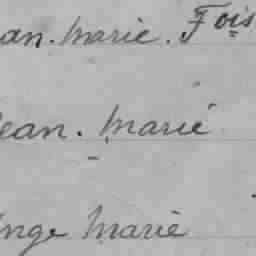 an. Marie. Fois
Jean. Marie
Ange Marie